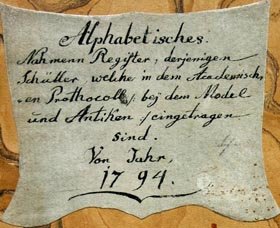 Alphabetisches.
Nahmenn Register, derjenigen
Schüller welche in dem Academisch,
en Prothocoll /: bej dem Model
und Antiken / eingetragen
sind.
Vom Jahr,
1794.